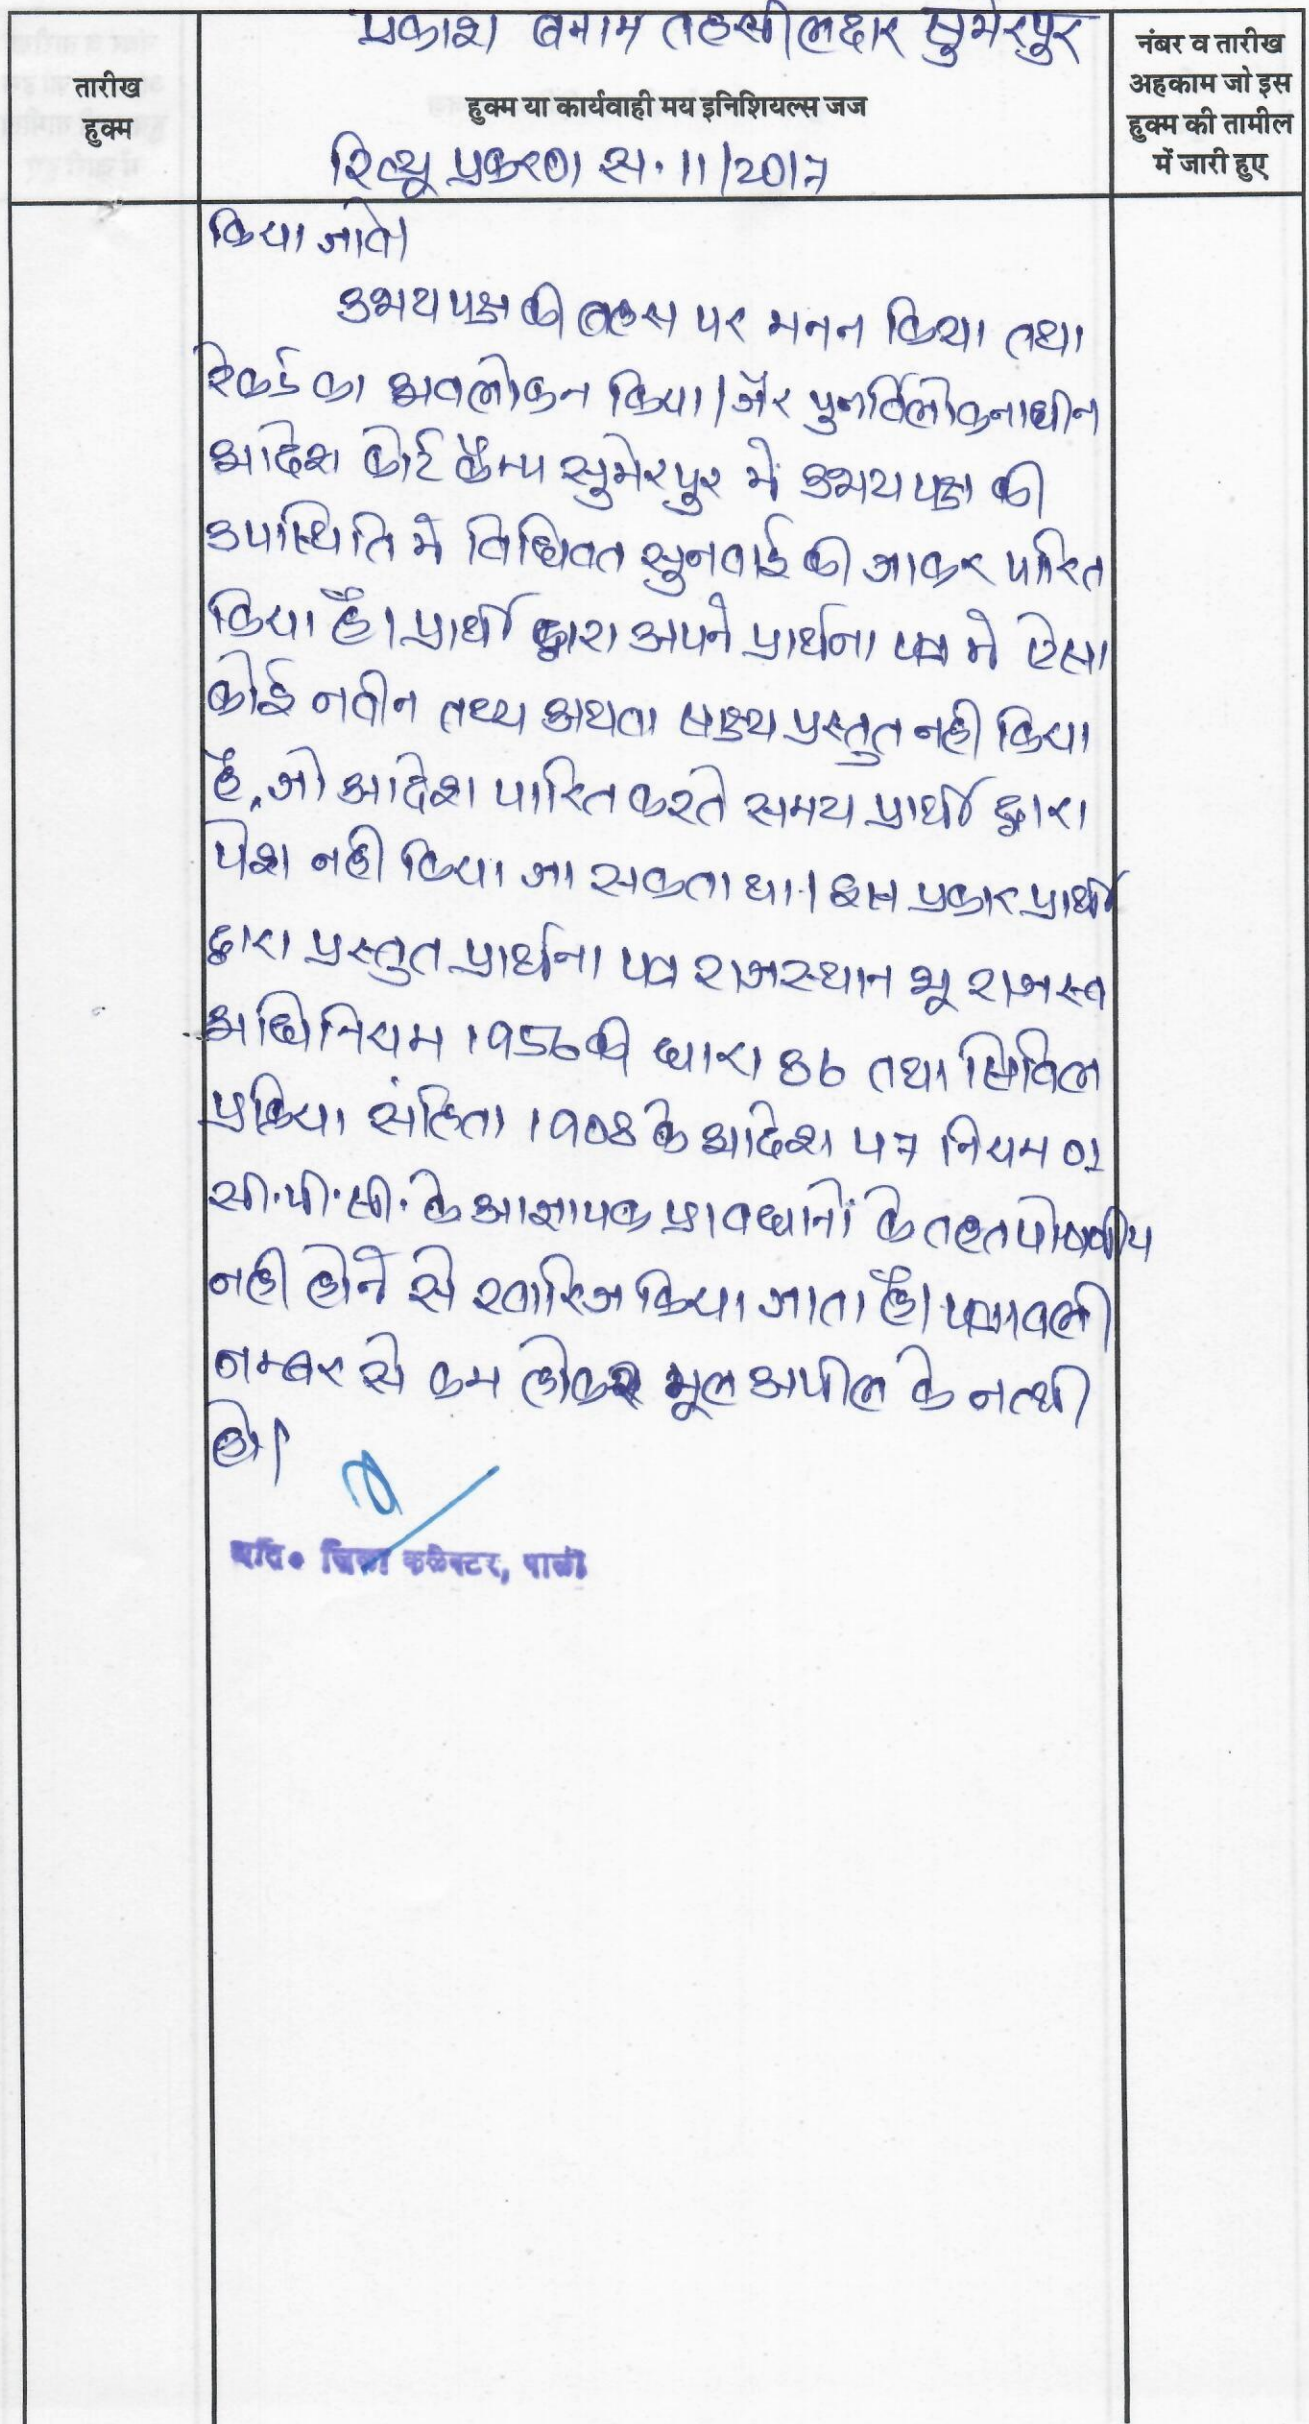 प्रकाश बनाम तहसीलदार सुमेरपुर
तारीख
हुक्म
हुक्म या कार्यवाही मय इनिशियल्स जज
रिव्यू प्रकरण स. 11/2017
नंबर व तारीख
अहकाम जो इस
हुक्म की तामील
में जारी हुए
किया जावे।
उभयपक्ष की बहस पर मनन किया तथा
रेकर्ड का अवलोकन किया। जैर पुनर्विलोकनाधीन
आदेश कोर्ट कैम्प सुमेरपुर में उभयपक्ष की
उपस्थिति मे विधिवत सुनवाई की जाकर पारित
किया है। प्रार्थी द्वारा अपने प्रार्थना पत्र मे ऐसा
कोई नवीन तथ्य अथवा साक्ष्य प्रस्तुत नही किया
है, जो आदेश पारित करते समय प्रार्थी द्वारा
पेश नही किया जा सकता था। इस प्रकार प्रार्थी
द्वारा प्रस्तुत प्रार्थना पत्र राजस्थान भू राजस्व
अधिनियम 1956 की धारा 86 तथा सिविल
प्रक्रिया संहिता 1908 के आदेश 47 नियम 01
सी.पी.सी. के आज्ञापक प्रावधानों के तहत पोषणीय
नही होने से खारिज किया जाता है। पत्रावली
नम्बर से कम होकर मूल अपील के नत्थी
हो।
अति. जिला कलेक्टर, पाली